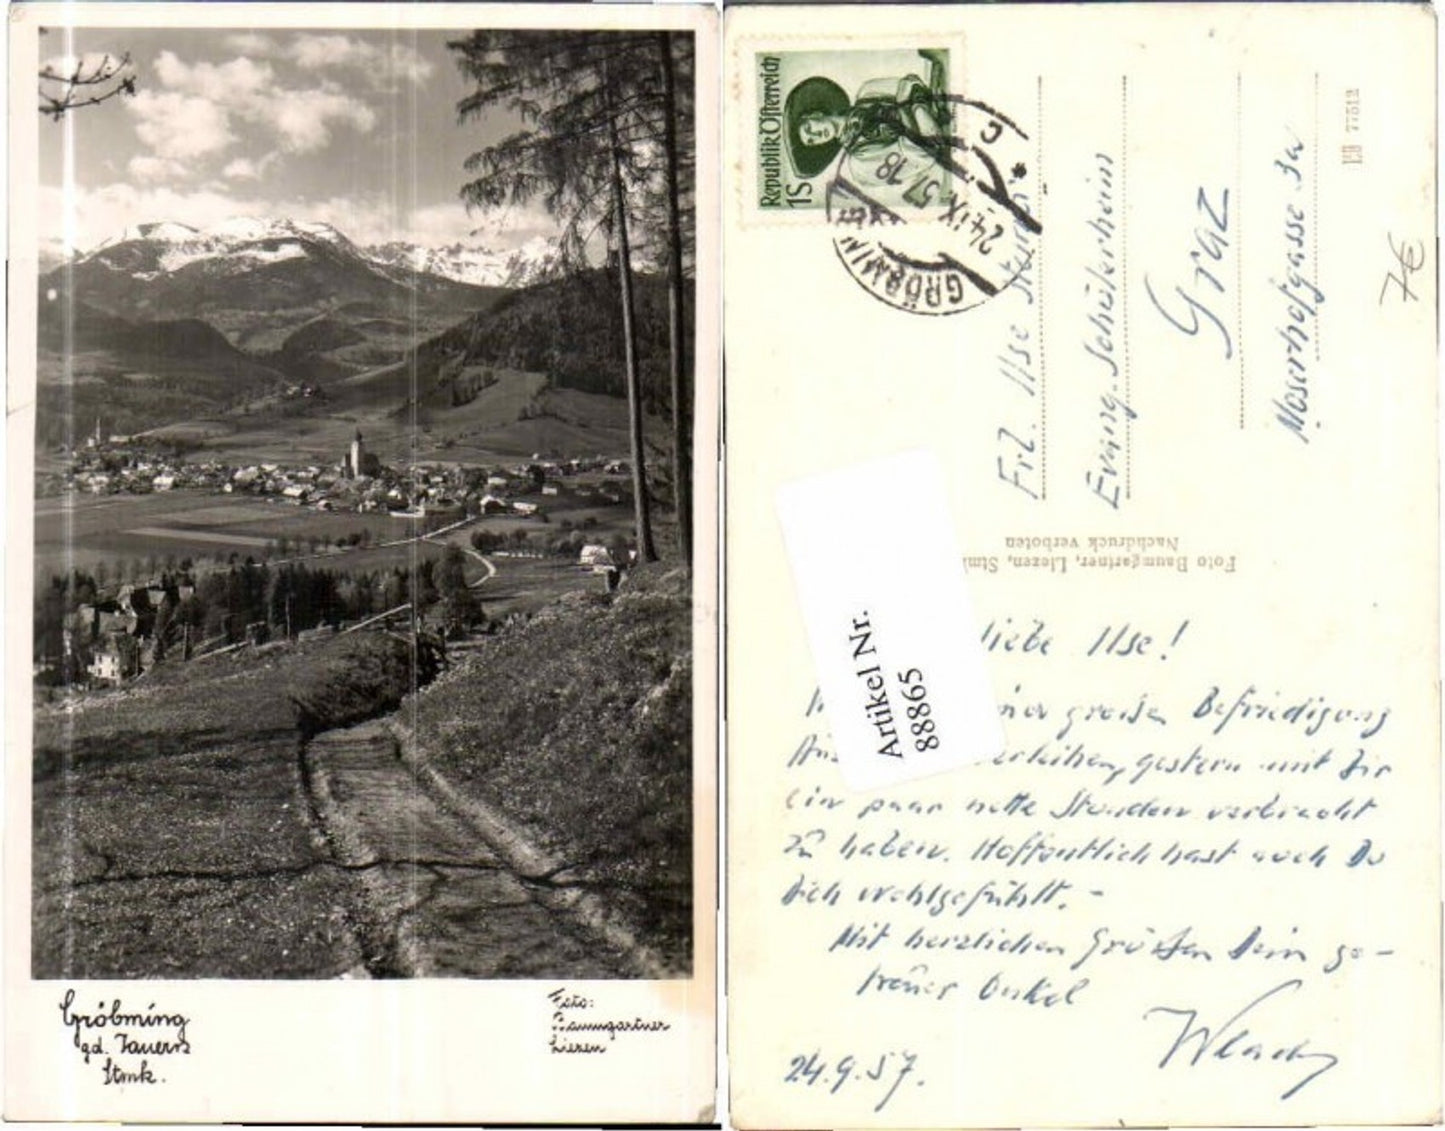 Gröbming
gd. Tauern
Stmk.
Foto:
Baumgartner
Liezen
Republik Österreich
1S
GRÖBMIN
24.IX.57 18
C
Frl. Ilse
Evang. Schülerheim
Graz
Moserhofgasse 3a
77512
7€
Foto Baumgartner, Liezen, Stm
Nachdruck verboten
Artikel Nr.
88865
liebe Ilse!
großen Befriedigung
verleihen, gestern mit Dir
ein paar nette Stunden verbracht
zu haben. Hoffentlich hast auch Du
Dich wohlgefühlt. -
Mit herzlichen Grüßen Dein ge-
treuer Onkel
24.9.57.